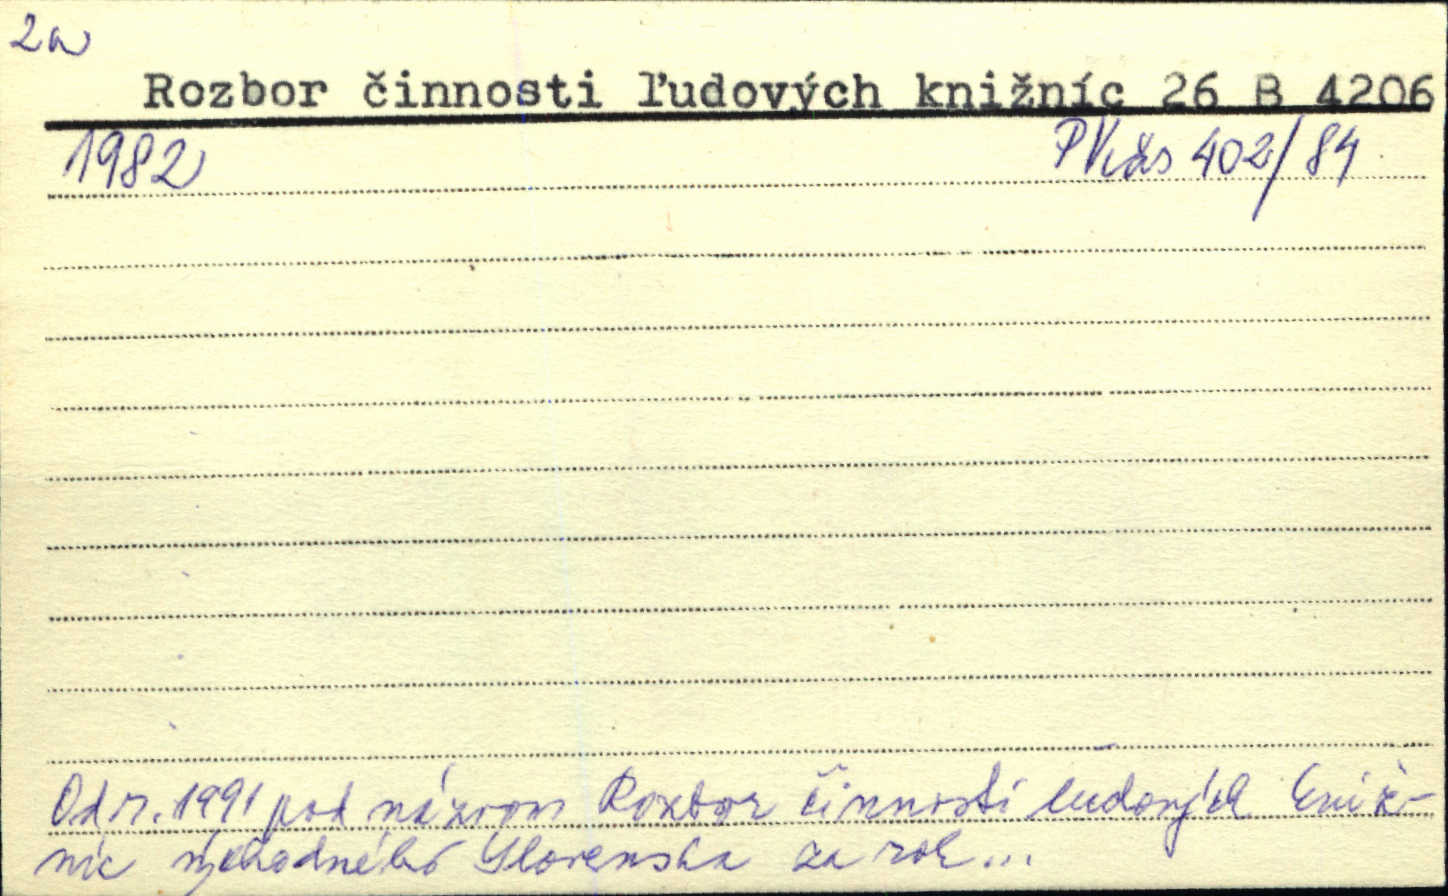 2a
Rozbor činnosti ľudových knižníc 26 B 4206
1982 PVčás 402/84
Od r. 1991 pod názvom Rozbor činnosti ludových kniž-
níc východného Slovenska za rok...